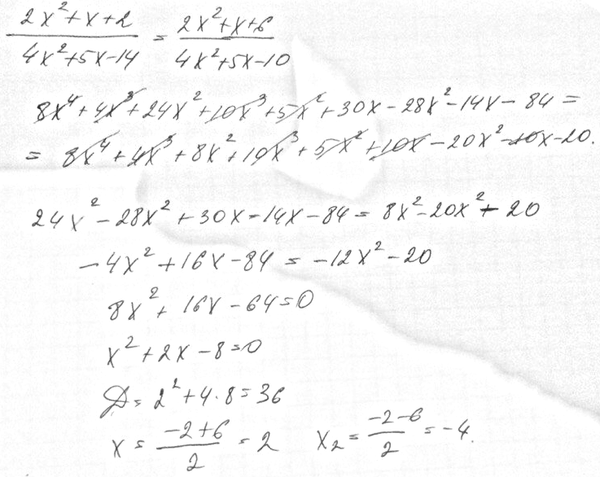 (2x²+x+2)/(4x²+5x-14) = (2x²+x+6)/(4x²+5x-10)
8x⁴+4x³+24x²+10x³+5x²+30x-28x²-14x-84=
= 8x⁴+4x³+8x²+10x³+5x²+10x-20x²-10x-20.
24x²-28x²+30x-14x-84=8x²-20x²-20
-4x²+16x-84=-12x²-20
8x²+16x-64=0
x²+2x-8=0
D=2²+4·8=36
x=(-2+6)/2=2 x₂=(-2-6)/2=-4.